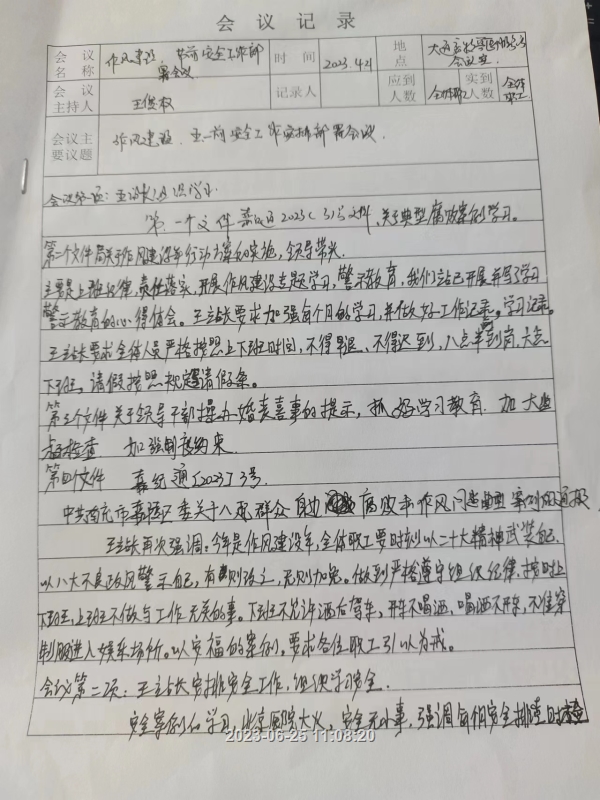 会议记录
会议名称 作风建设 节前安全工作部署会议 时间 2023.4.21 地点 会议室
会议主持人 记录人 应到人数 全体职工 实到人数 全体职工
会议主要议题 作风建设、五一前安全工作安排部署会议.
会议第一项：王站长组织学习.
第一个文件 2023〔3〕号文件，关于典型腐败案例学习。
第二个文件局关于作风建设年行动方案的实施，领导带头.
主要是上班纪律，责任落实，开展作风建设专题学习，警示教育，我们站已开展并写了学习
警示教育的心得体会。王站长要求加强每个月的学习，并做好工作记录。学习记录。
王站长要求全体人员严格按照上下班时间，不得早退、不得迟到，八点半到岗，
下班，请假按照规定写请假条。
第三个文件 关于领导干部操办婚丧喜事的提示，抓好学习教育. 加大监
督检查 加强制度约束
第四个文件 嘉纪通〔2023〕3号
中共南充市嘉陵区委关于八起群众身边腐败和作风问题典型案例的通报
王站长再次强调：今年是作风建设年，全体职工要时刻以二十大精神武装自己.
以八大不良政风警示自己，有则改之，无则加勉。做到严格遵守组织纪律，按时上
下班，上班不做与工作无关的事。下班不允许酒后驾车，开车不喝酒，喝酒不开车，不准穿
制服进入娱乐场所。以安福的案例，要求各位职工引以为戒。
会议第二项：王站长安排安全工作，组织学习安全.
安全案例的学习，北京医院大火，安全无小事，强调每月安全排查
2023-06-25 11:08:20